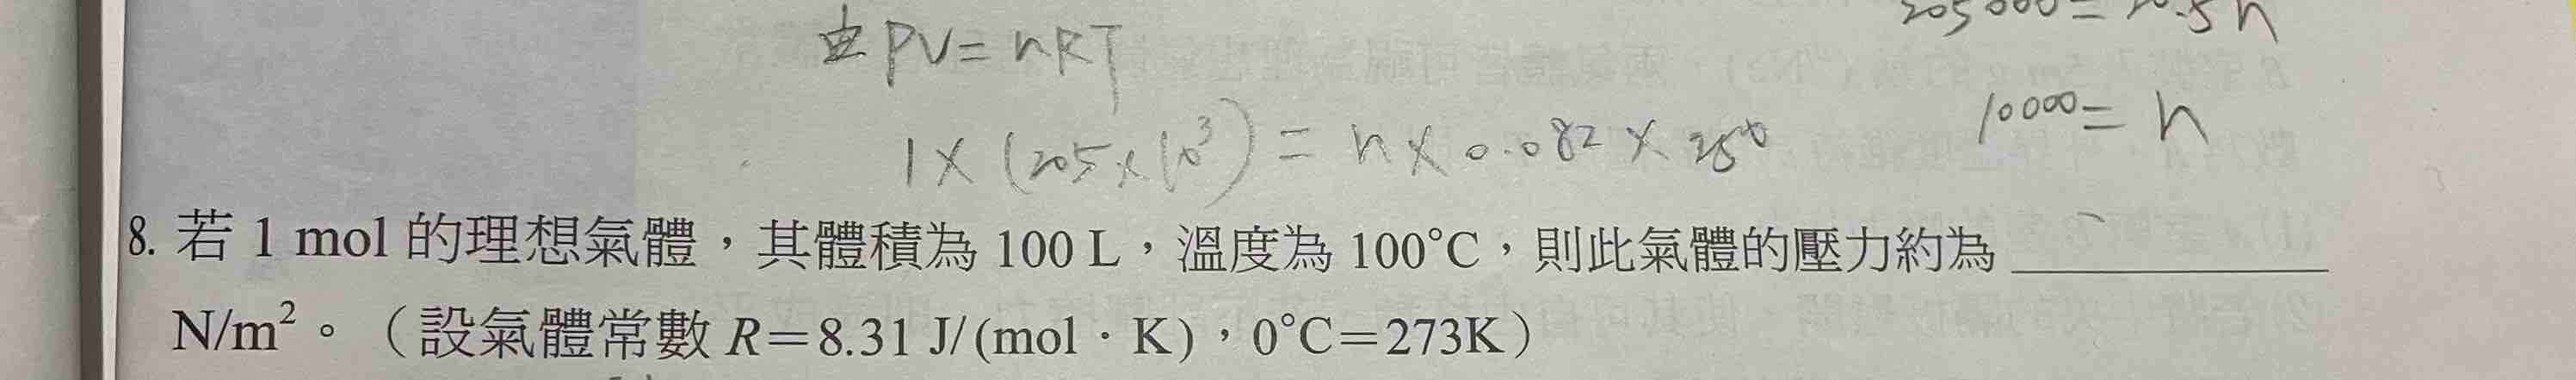 205000=20.5n
由PV=nRT
10000=n
1×(205×10³)=n×0.082×250
8. 若 1 mol 的理想氣體，其體積為 100 L，溫度為 100°C，則此氣體的壓力約為＿＿＿＿＿
N/m²。（設氣體常數 R＝8.31 J/(mol · K)，0°C＝273K）